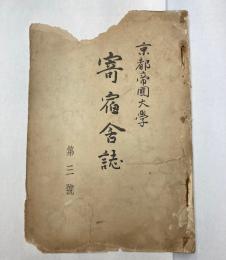 京都帝國大學
寄宿舍誌
第三號